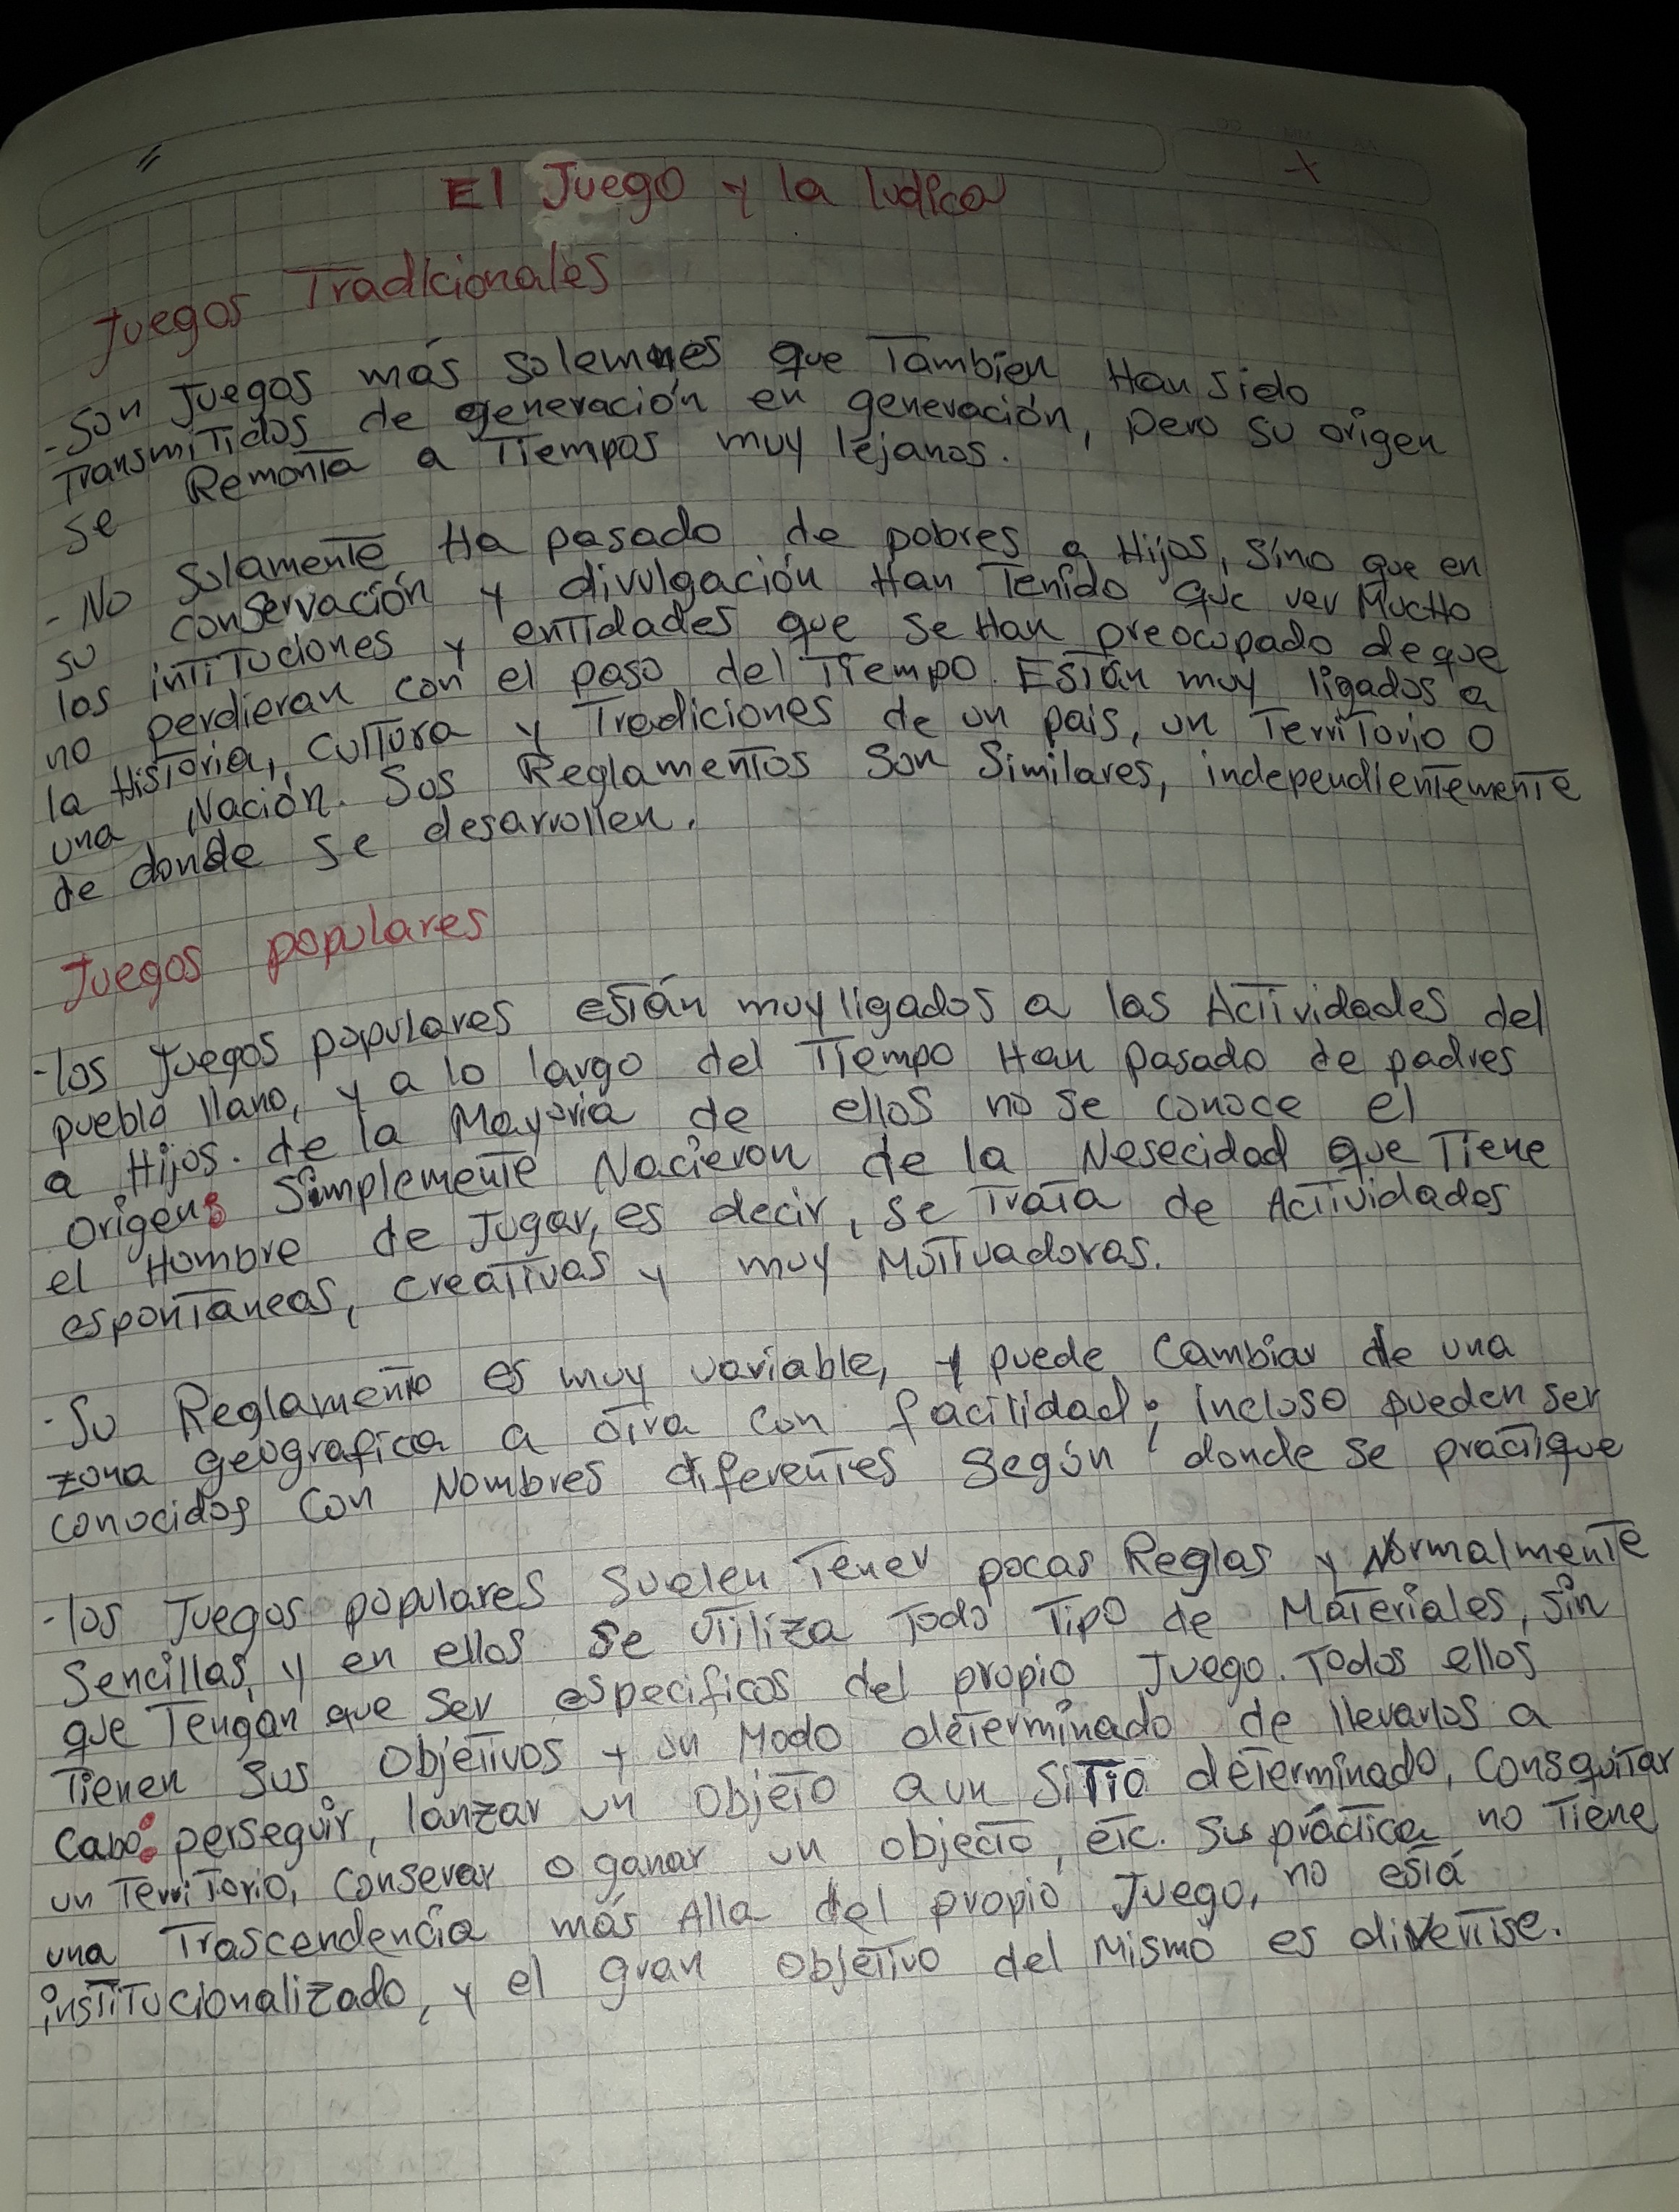 El Juego y la ludica
Juegos Tradicionales
- Son Juegos más solemnes que Tambien Han sido
Transmitidos de generación en generación, pero su origen
se Remonta a Tiempos muy lejanos.
- No Solamente Ha pasado de pobres a Hijos, Sino que en
su conservación y divulgación Han Tenido que ver Mucho
los intituciones y entidades que se Han preocupado de que
no perdieran con el paso del Tiempo. Están muy ligados a
la Historia, cultura y Trediciones de un país, un Territorio o
una Nación. Sus Reglamentos Son Similares, independientemente
de donde se desarrollen.
Juegos populares
- los Juegos populares están muy ligados a las Actividades del
pueblo llano, y a lo largo del Tiempo Han pasado de padres
a Hijos. de la Mayoria de ellos no se conoce el
origen: Simplemente Nacieron de la Nesecidad que Tiene
el Hombre de Jugar, es decir, se Trata de Actividades
espontaneas, creativas y muy Motivadoras.
- Su Reglamento es muy variable, y puede Cambiar de una
zona geografica a otra con facilidad; incluso pueden ser
conocidos Con Nombres diferentes Según donde se practique
- los Juegos populares Suelen Tener pocas Reglas y Normalmente
Sencillas, y en ellos se utiliza Todo Tipo de Materiales, sin
que Tengan que Ser especificos del propio Juego. Todos ellos
Tienen Sus Objetivos y un Modo determinado de llevarlos a
Cabo: perseguir, lanzar un objeto a un Sitio determinado, Consquitar
un Territorio, Conserver o ganar un objecto, etc. Sus práctica no Tiene
una Trascendencia más Alla del propio Juego, no está
institucionalizado, y el gran objetivo del Mismo es divertise.